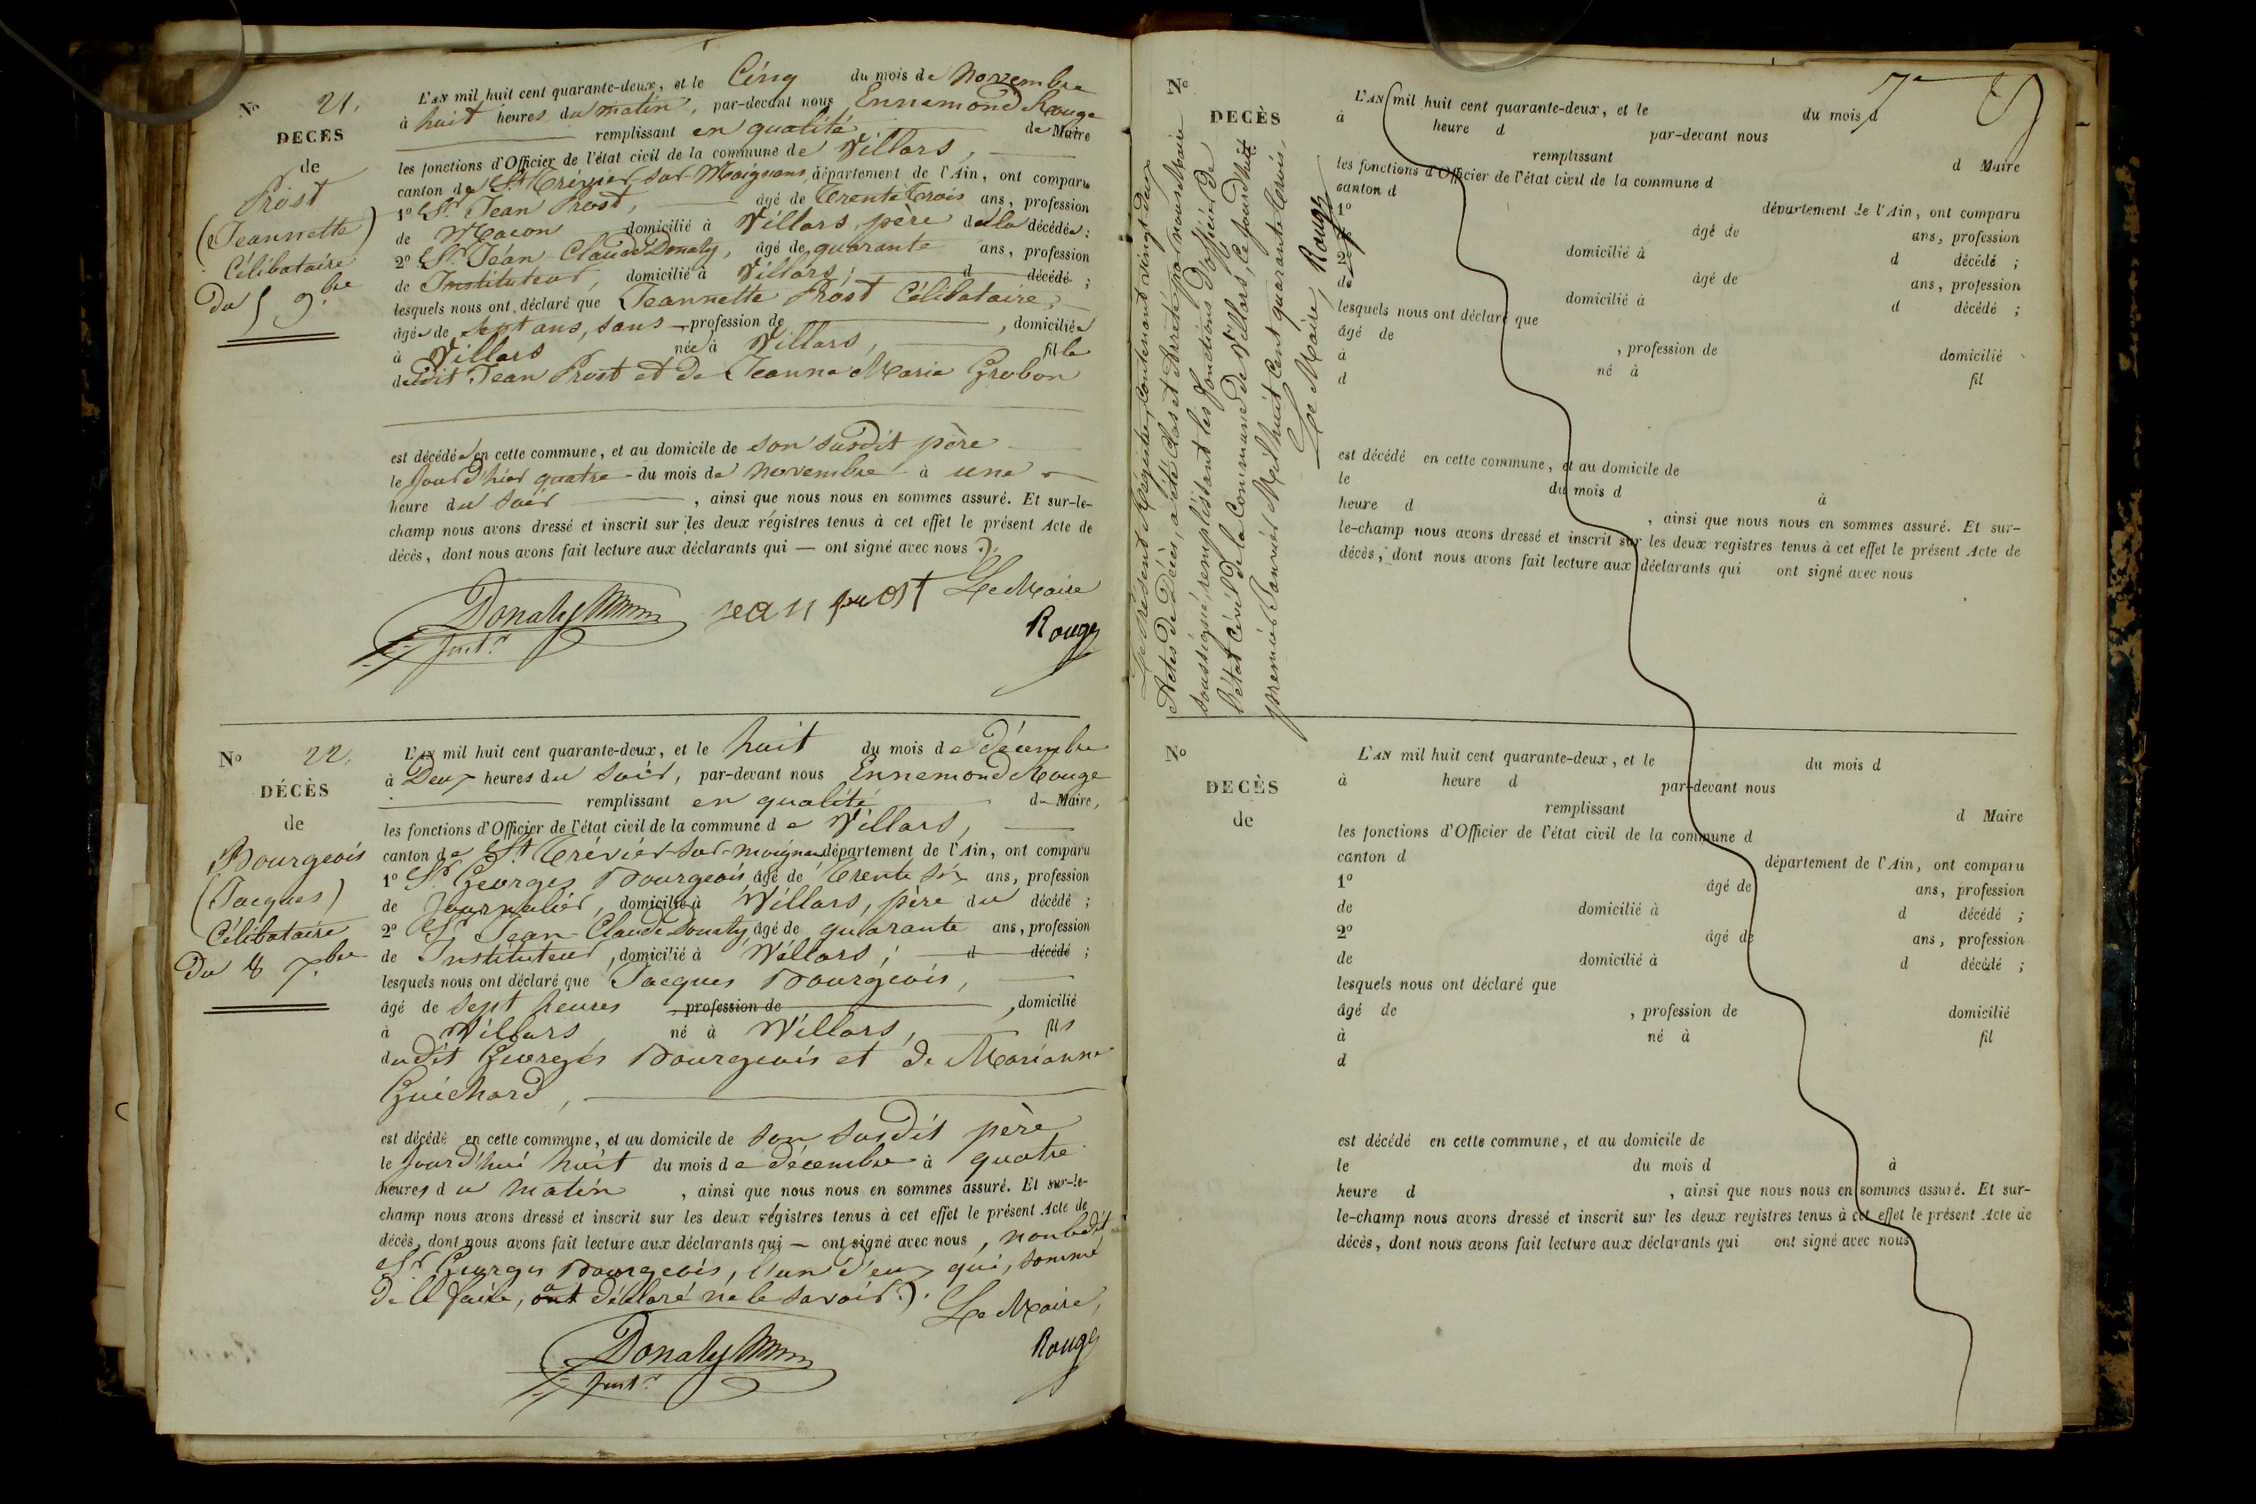 N° 21.
DÉCÈS
de
Prost
(Jeannette)
Célibataire
Du 5 9.bre
L'AN mil huit cent quarante-deux, et le Cinq du mois de Novembre
à huit heures du matin, par-devant nous Ennemond Rouge
remplissant en qualité de Maire
les fonctions d'Officier de l'état civil de la commune de Villars,
canton de St Trévier sur Moignans, département de l'Ain, ont comparu
1° Sr Jean Prost, âgé de Trente Trois ans, profession
de Macon domicilié à Villars, père de la décédée ;
2° Sr Jean Claude Donaty, âgé de quarante ans, profession
de Instituteur, domicilié à Villars ; d décédé ;
lesquels nous ont déclaré que Jeannette Prost Célibataire,
âgée de sept ans, sans profession de , domiciliée
à Villars née à Villars, fille
dudit Jean Prost et de Jeanne Marie Grobon
est décédée en cette commune, et au domicile de son susdit père
le jour d'hier quatre du mois de novembre à une
heure du soir , ainsi que nous nous en sommes assuré. Et sur-le-
champ nous avons dressé et inscrit sur les deux régistres tenus à cet effet le présent Acte de
décès, dont nous avons fait lecture aux déclarants qui — ont signé avec nous ).
Donaty jean prost Le Maire
Inst.r Rouge
N° 22.
DÉCÈS
de
Bourgeois
(Jacques)
Célibataire
Du 8 7.bre
L'AN mil huit cent quarante-deux, et le huit du mois de décembre
à Deux heures du soir, par-devant nous Ennemond Rouge
remplissant en qualité de Maire,
les fonctions d'Officier de l'état civil de la commune de Villars,
canton de St Trévier sur moignans département de l'Ain, ont comparu
1° Sr Georges Bourgeois âgé de Trente six ans, profession
de Journalier, domicilié à Villars, père du décédé ;
2° Sr Jean Claude Donaty âgé de quarante ans, profession
de Instituteur, domicilié à Villars ; d décédé ;
lesquels nous ont déclaré que Jacques Bourgeois,
âgé de sept heures profession de , domicilié
à Villars né à Villars, fils
dudit Georges Bourgeois et de Marianne
Guichard,
est décédé en cette commune, et au domicile de son susdit père
le jourd'hui huit du mois de décembre à quatre
heures du matin , ainsi que nous nous en sommes assuré. Et sur-le-
champ nous avons dressé et inscrit sur les deux régistres tenus à cet effet le présent Acte de
décès, dont nous avons fait lecture aux déclarants qui — ont signé avec nous, non ledit
Sr Georges Bourgeois, l'un d'eux qui, sommé
de le faire, a déclaré ne le savoir ).
Donaty Le Maire,
Inst.r Rouge
Le présent Régistre, Contenant vingt deux
Actes de Décès, a été Clos et Arrêté par nous Maire
soussigné, remplissant les fonctions d'officier de
l'état civil de la Commune de Villars, ce jourd'huit
premier Janvier Mil huit Cent quarante trois.
Le Maire, Rouge
N°
DÉCÈS
7e
L'AN mil huit cent quarante-deux, et le du mois d
à heure d par-devant nous
remplissant d Maire
les fonctions d'Officier de l'état civil de la commune d
canton d département de l'Ain, ont comparu
1° âgé de ans, profession
de domicilié à d décédé ;
2° âgé de ans, profession
de domicilié à d décédé ;
lesquels nous ont déclaré que
âgé de , profession de domicilié
à né à fil
d
est décédé en cette commune, et au domicile de
le du mois d à
heure d , ainsi que nous nous en sommes assuré. Et sur-
le-champ nous avons dressé et inscrit sur les deux registres tenus à cet effet le présent Acte de
décès, dont nous avons fait lecture aux déclarants qui ont signé avec nous
N°
DÉCÈS
de
L'AN mil huit cent quarante-deux, et le du mois d
à heure d par-devant nous
remplissant d Maire
les fonctions d'Officier de l'état civil de la commune d
canton d département de l'Ain, ont comparu
1° âgé de ans, profession
de domicilié à d décédé ;
2° âgé de ans, profession
de domicilié à d décédé ;
lesquels nous ont déclaré que
âgé de , profession de domicilié
à né à fil
d
est décédé en cette commune, et au domicile de
le du mois d à
heure d , ainsi que nous nous en sommes assuré. Et sur-
le-champ nous avons dressé et inscrit sur les deux registres tenus à cet effet le présent Acte de
décès, dont nous avons fait lecture aux déclarants qui ont signé avec nous